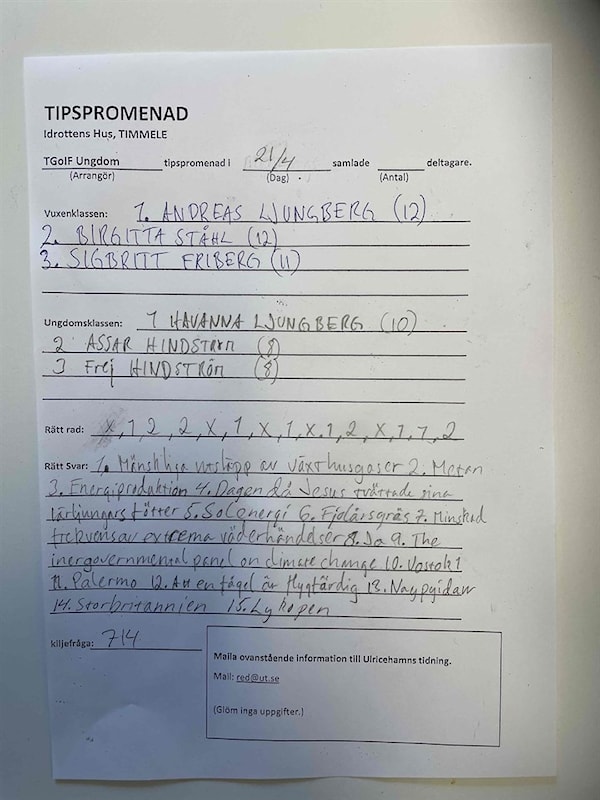 TIPSPROMENAD
Idrottens Hus, TIMMELE
TGoIF Ungdom tipspromenad i 21/4 samlade deltagare.
(Arrangör) (Dag) (Antal)
Vuxenklassen: 1. ANDREAS LJUNGBERG (12)
2. BIRGITTA STÅHL (12)
3. SIGBRITT FRIBERG (11)
Ungdomsklassen: 1 HAVANNA LJUNGBERG (10)
2 ASSAR HINDSTRÖM (8)
3 Frej HINDSTRÖM (8)
Rätt rad: X,1,2,2,X,1,X,1,X,1,2,X,1,1,2
Rätt Svar: 1. Mänskliga utsläpp av växthusgaser 2. Metan
3. Energiproduktion 4. Dagen då Jesus tvättade sina
lärljungars fötter 5. Solenergi 6. Fjolårsgräs 7. Minskad
frekvens av extrema väderhändelser 8. Ja 9. The
inergovernmental panel on climate change 10. Vostok 1
11. Palermo 12. Att en fågel är flygfärdig 13. Naypyidaw
14. Storbritannien 15. Lykopen
kiljefråga: 714
Maila ovanstående information till Ulricehamns tidning.
Mail: red@ut.se
(Glöm inga uppgifter.)